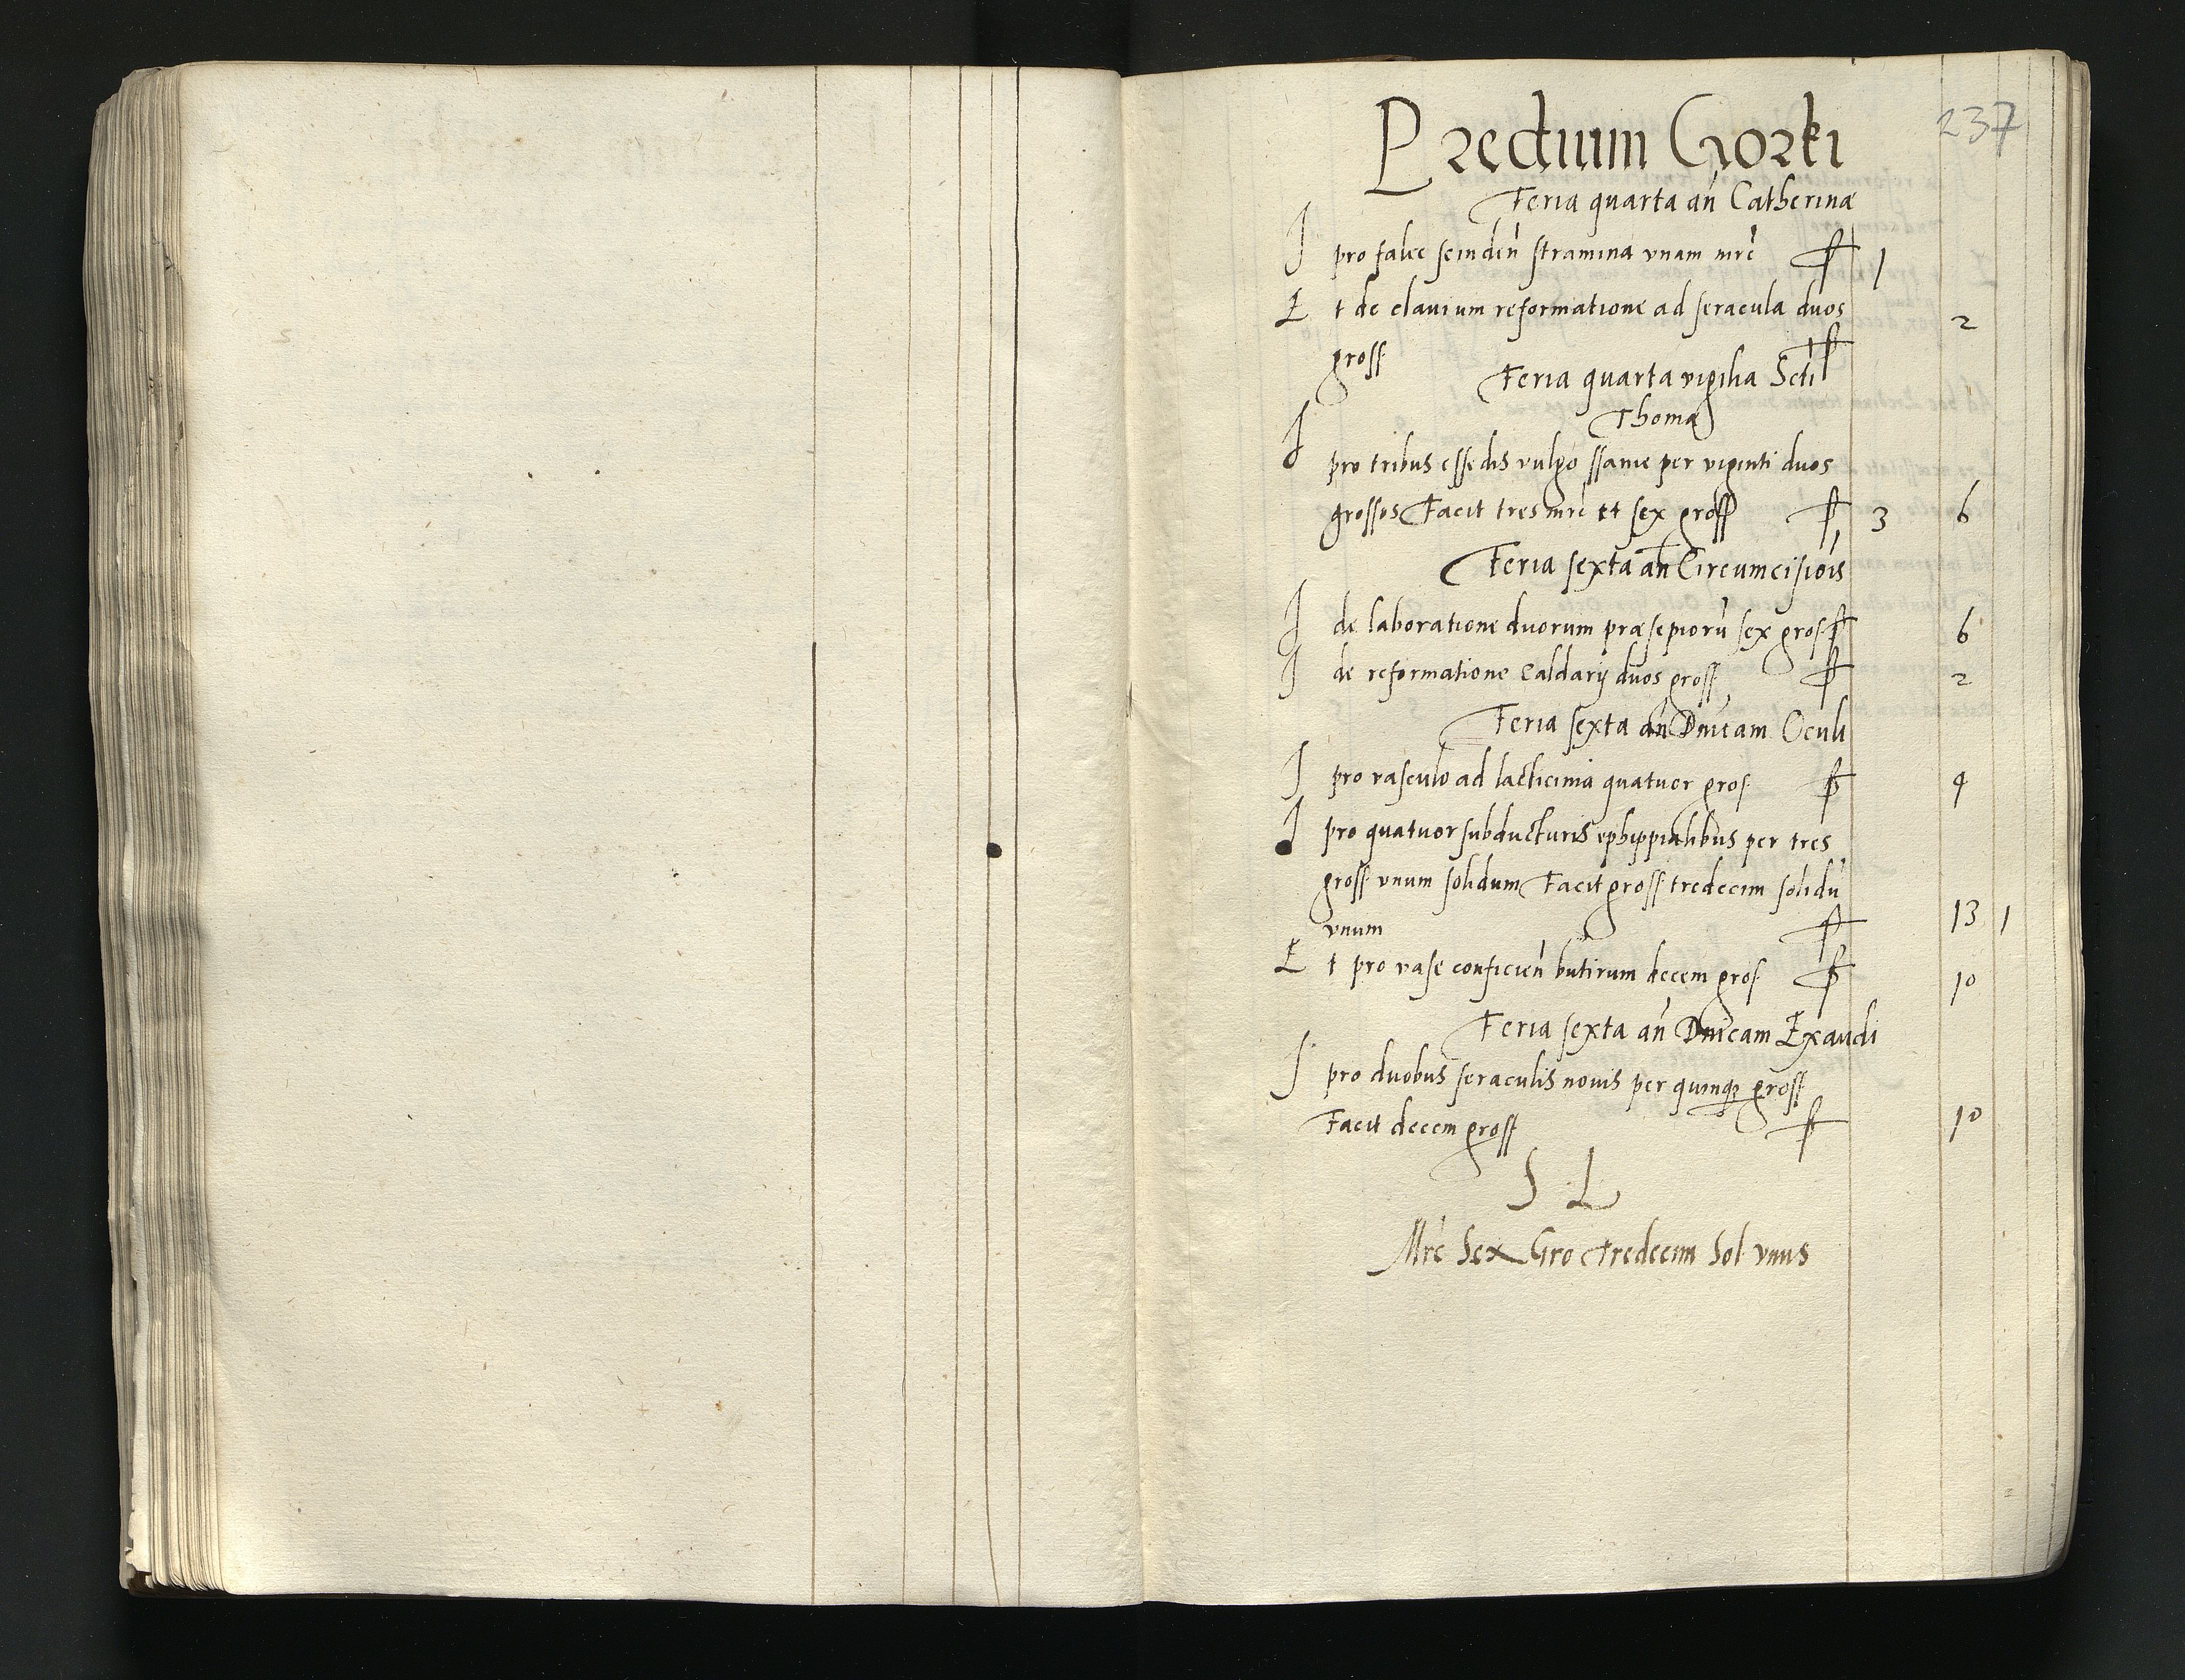 237
Predium Gorki
Feria quarta añ Catherinæ
I pro falce scinden̄ stramina vnam mrč ꝑ 1
Et de clauium reformatione ad seracula duos 2
gross
Feria quarta vigilia Scti
Thomæ
I pro tribus essedis vulgo ssanie per viginti duos
grossos Facit tres mrč et sex gross 3 6
Feria sexta añ Circumcisiois
I de laboratione duorum præsepiorū sex gross 6
I de reformatione Caldarij duos gross 2
Feria sexta añ Dnicam Oculi
I pro vasculo ad lacticinia quatuor gros 4
I pro quatuor subducturis ephippialibus per tres
gross vnum solidum Facit gross tredecim solidū
vnum 13 1
Et pro vase conficien̄ butirum decem gros 10
Feria sexta añ Dnicam Exaudi
I pro duobus seraculis nouis per quinqꝫ gross
Facit decem gross 10
S L
Mrč Sex Gro tredecim Sol vnus